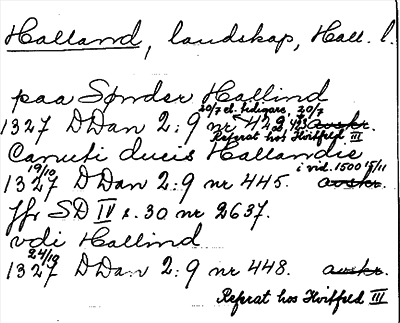 Halland, landskap, Hall. l.
paa Sønder Hallind
20/7 el. tidigare 20/7
1327 DDan 2:9 nr 429 o. 43 avskr.
Referat hos Hvitfeld III
Canuti ducis Hallandie
19/10 i vid. 1500 15/11
1327 DDan 2:9 nr 445. avskr.
Jfr SD IV s. 30 nr 2637.
vdi Hallind
24/10
1327 DDan 2:9 nr 448. avskr.
Referat hos Hvitfeld III